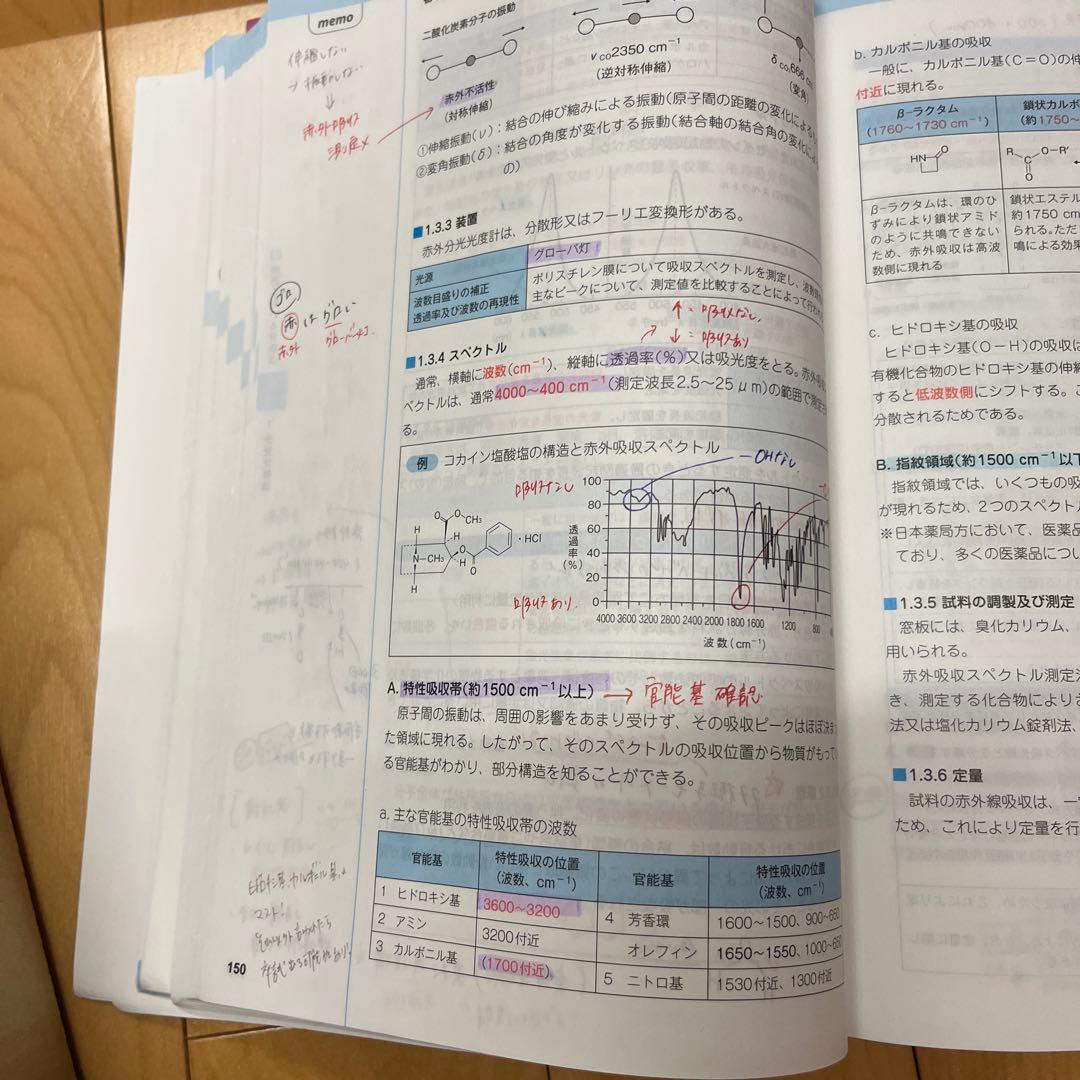 memo
二酸化炭素分子の振動
赤外不活性
(対称伸縮)
ν CO 2350 cm⁻¹
(逆対称伸縮)
δ CO₂ 666 cm
(変角)
伸縮しない
→ 振動しない
↓
赤外吸収
測定×
①伸縮振動(ν):結合の伸び縮みによる振動(原子間の距離の変化による
②変角振動(δ):結合の角度が変化する振動(結合軸の結合角の変化に
の)
■1.3.3 装置
赤外分光光度計は、分散形又はフーリエ変換形がある。
光源
グローバ灯
波数目盛りの補正
透過率及び波数の再現性
ポリスチレン膜について吸収スペクトルを測定し、波数
主なピークについて、測定値を比較することによって行
ゴロ
赤はグロい
赤外
グローバー灯
↑ = 吸収なし
↓ = 吸収あり
■1.3.4 スペクトル
通常、横軸に波数(cm⁻¹)、縦軸に透過率(%)又は吸光度をとる。赤外
ペクトルは、通常4000~400 cm⁻¹(測定波長2.5~25 μm)の範囲で測定
る。
例 コカイン塩酸塩の構造と赤外吸収スペクトル
OHなし
吸収なし
吸収あり
O
O
CH₃
H
H
N-CH₃
O
H
O
H
・HCl
透過率(%)
100
80
60
40
20
0
4000 3600 3200 2800 2400 2000 1800 1600 1200 800
波数(cm⁻¹)
A. 特性吸収帯(約1500 cm⁻¹以上) → 官能基確認
原子間の振動は、周囲の影響をあまり受けず、その吸収ピークはほぼ決ま
た領域に現れる。したがって、そのスペクトルの吸収位置から物質がもって
る官能基がわかり、部分構造を知ることができる。
a. 主な官能基の特性吸収帯の波数
官能基
特性吸収の位置
(波数、cm⁻¹)
官能基
特性吸収の位置
(波数、cm⁻¹)
1 ヒドロキシ基 3600~3200
2 アミン 3200付近
3 カルボニル基 (1700付近)
4 芳香環 1600~1500、900~650
オレフィン 1650~1550、1000~650
5 ニトロ基 1530付近、1300付近
150
b. カルボニル基の吸収
一般に、カルボニル基(C=O)の伸
付近に現れる。
β-ラクタム
(1760~1730 cm⁻¹)
鎖状カルボ
(約1750~
HN
O
R
C
O
O-R'
β-ラクタムは、環のひ
ずみにより鎖状アミド
のように共鳴できない
ため、赤外吸収は高波
数側に現れる
鎖状エステル
約1750 cm
られる。ただ
鳴による効果
c. ヒドロキシ基の吸収
ヒドロキシ基(O-H)の吸収は
有機化合物のヒドロキシ基の伸縮
すると低波数側にシフトする。こ
分散されるためである。
B. 指紋領域(約1500 cm⁻¹以下
指紋領域では、いくつもの吸
が現れるため、2つのスペクトル
※日本薬局方において、医薬品
ており、多くの医薬品につい
■1.3.5 試料の調製及び測定
窓板には、臭化カリウム、
用いられる。
赤外吸収スペクトル測定法
き、測定する化合物により
法又は塩化カリウム錠剤法、
■1.3.6 定量
試料の赤外線吸収は、一
ため、これにより定量を行